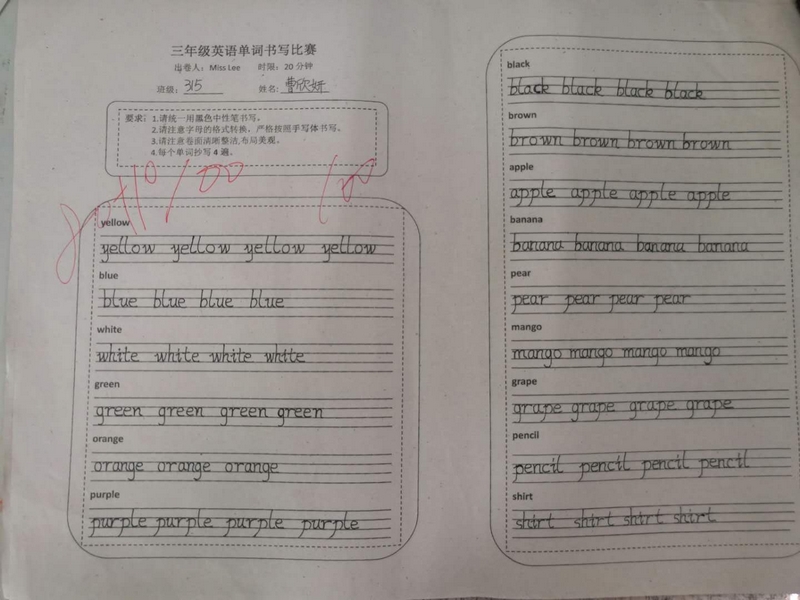 三年级英语单词书写比赛
出卷人：Miss Lee 时限：20分钟
班级：315 姓名：曹欣妍
要求：1.请统一用黑色中性笔书写。
2.请注意字母的格式转换，严格按照手写体书写。
3.请注意卷面清晰整洁,布局美观。
4.每个单词抄写4遍。
100
yellow
yellow yellow yellow yellow
blue
blue blue blue blue
white
white white white white
green
green green green green
orange
orange orange orange
purple
purple purple purple purple
black
black black black black
brown
brown brown brown brown
apple
apple apple apple apple
banana
banana banana banana banana
pear
pear pear pear pear
mango
mango mango mango mango
grape
grape grape grape grape
pencil
pencil pencil pencil pencil
shirt
shirt shirt shirt shirt